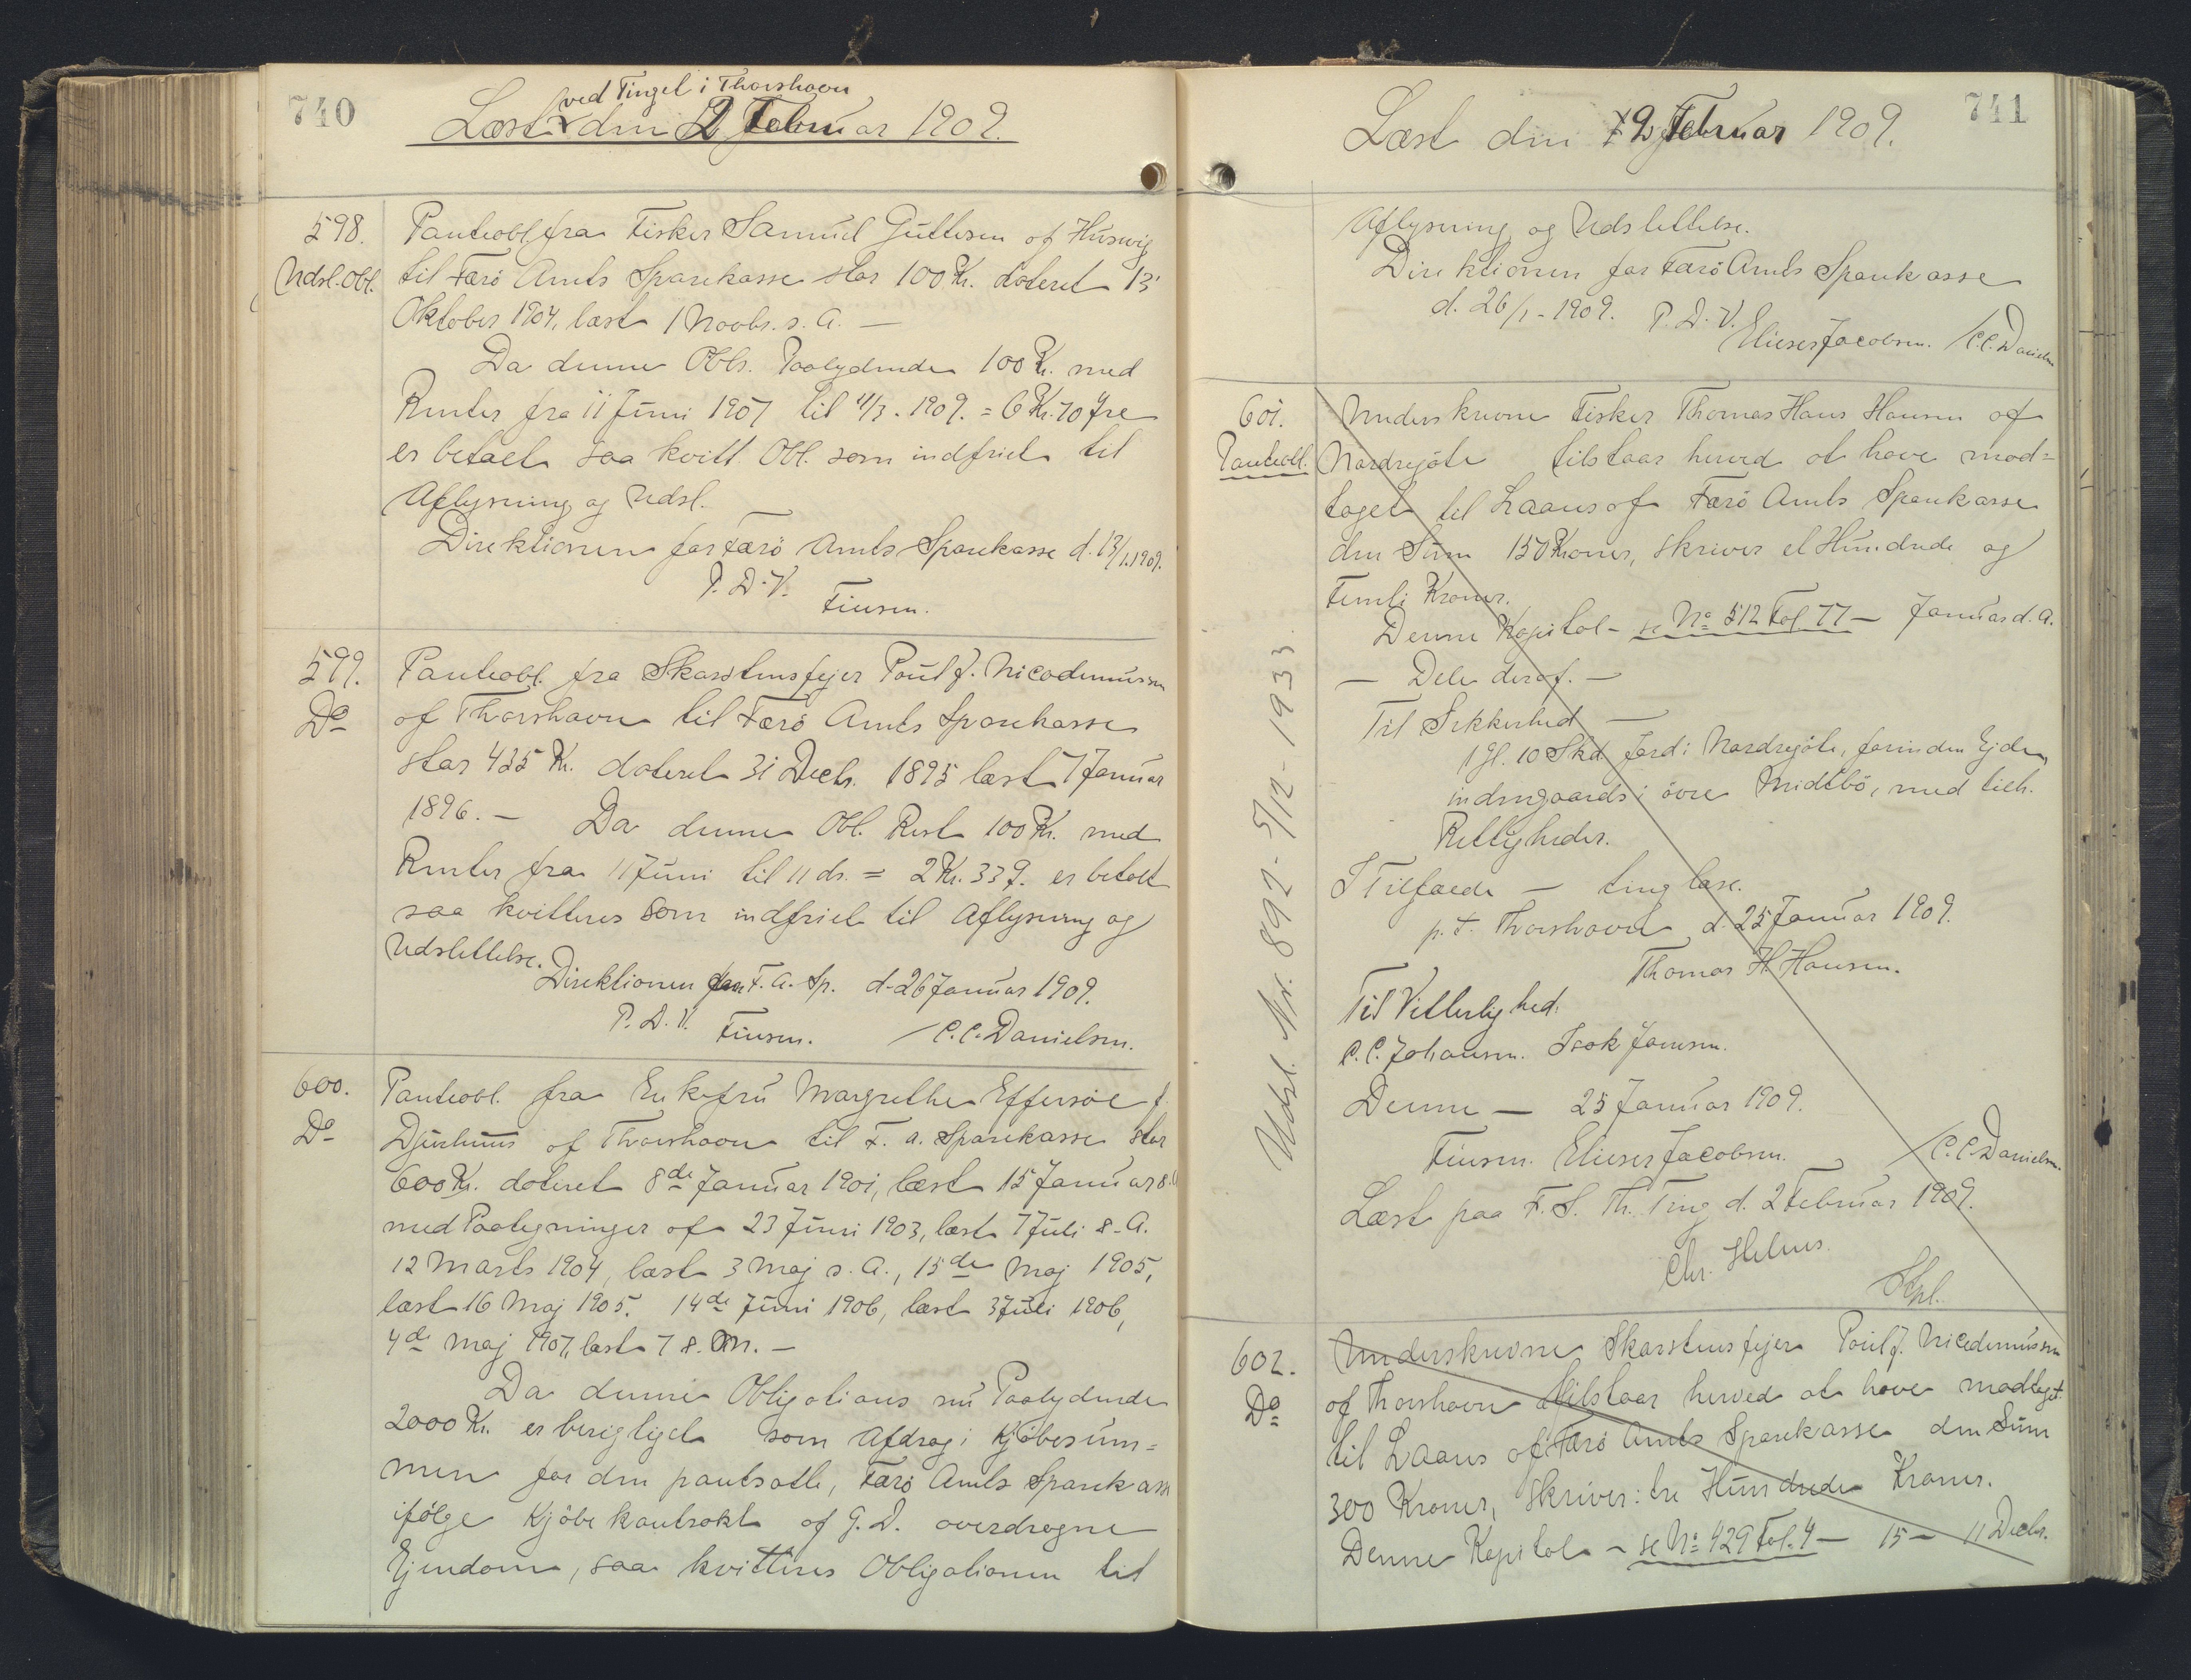 740
ved Tinget i Thorshavn
Læst den 2 Februar 1909.
598.
Udsl. Obl.
Panteobl. fra Fisker Samuel Guttesen af Husevig
til Færö Amts Sparekasse stor 100 Kr. dateret 13
Oktober 1904, læst 1 Novbr. s. A. —
Da denne Obls. Paalydende 100 Kr. med
Renter fra 11 Juni 1907 til 11/3. 1909. = 6 Kr. 70 Øre
er betalt saa kvitt. Obl. som indfriet til
Aflysning og Udsl.
Direktionen for Færö Amts Sparekasse d. 13/1.1909.
P. D. V.
Finsen.
599.
Do
Panteobl. fra Skorstensfejer Poul J. Nicodemussen
af Thorshavn til Færö Amts Sparekasse
stor 435 Kr. dateret 31 Decbr. 1895 læst 7 Januar
1896. — Da denne Obl. Rest 100 Kr. med
Renter fra 11 Juni til 11 ds. = 2 Kr. 33 Ø. er betalt
saa kvitteres som indfriet til Aflysning og
Udslettelse.
Direktionen for F. A. Sp. d. 26 Januar 1909.
P. D. V. Finsen. / C. C. Danielsen.
600.
Do
Panteobl. fra Enkefru Margrethe Effersöe f.
Djurhuus af Thorshavn til F. A. Sparekasse stor
600 Kr. dateret 8de Januar 1901, læst 15 Januar s. A
med Paategninger af 23 Juni 1903, læst 7 Juli s. A.
12 Marts 1904, læst 3 Maj s. A., 15de Maj 1905,
læst 16 Maj 1905. 14de Juni 1906, læst 3 Juli 1906,
4de Maj 1907, læst 7 s. M. —
Da denne Obligations nu Paalydende
2000 Kr. er berigtiget som Afdrag i Kjöbesum=
men for den pantsatte, Færö Amts Sparekasse
ifölge Kjöbekontrakt af G. D. overdragne
Ejendom, saa kvitteres Obligationen til
741
Læst den 2 Februar 1909.
Aflysning og Udslettelse.
Direktionen for Færö Amts Sparekasse
d. 26/1 - 1909. P. D. V.
Elieser Jacobsen. / C. C. Danielsen
601.
Panteobl.
Underskrevne Fisker Thomas Hans Hansen af
Nordregöte tilstaar herved at have mod=
taget til Laans af Færö Amts Sparekasse
den Sum 150 Kroner, skriver et Hundrede og
Femti Kroner.
Denne Kapital - se No 512 Fol. 77 — Januar d. A.
— Dele deraf. —
Til Sikkerhed —
1 Gl. 10 Skd. Jord i Nordregöte, forinden Ejde,
indengaards i övre Midtbö, med tilh.
Rettigheder.
I Tilfælde — tinglæse.
p. t. Thorshavn d. 25 Januar 1909.
Thomas H. Hansen.
Til Vitterlighed:
C. C. Johansen. Isak Joensen.
Denne — 25 Januar 1909.
Finsen. Elieser Jacobsen. / C. C. Danielsen.
Læst paa F. S. Th. Ting d. 2 Februar 1909.
Chr. Helms.
Udsl. Nr. 892 - 5/12 - 1933
602.
Do
Underskrevne Skorstensfejer Poul J. Nicodemussen
af Thorshavn tilstaar herved at have modtaget
til Laans af Færö Amts Sparekasse den Sum
300 Kroner, skriver: tre Hundrede Kroner.
Denne Kapital - se No 429 Fol. 4 — 15 — 11 Decbr.